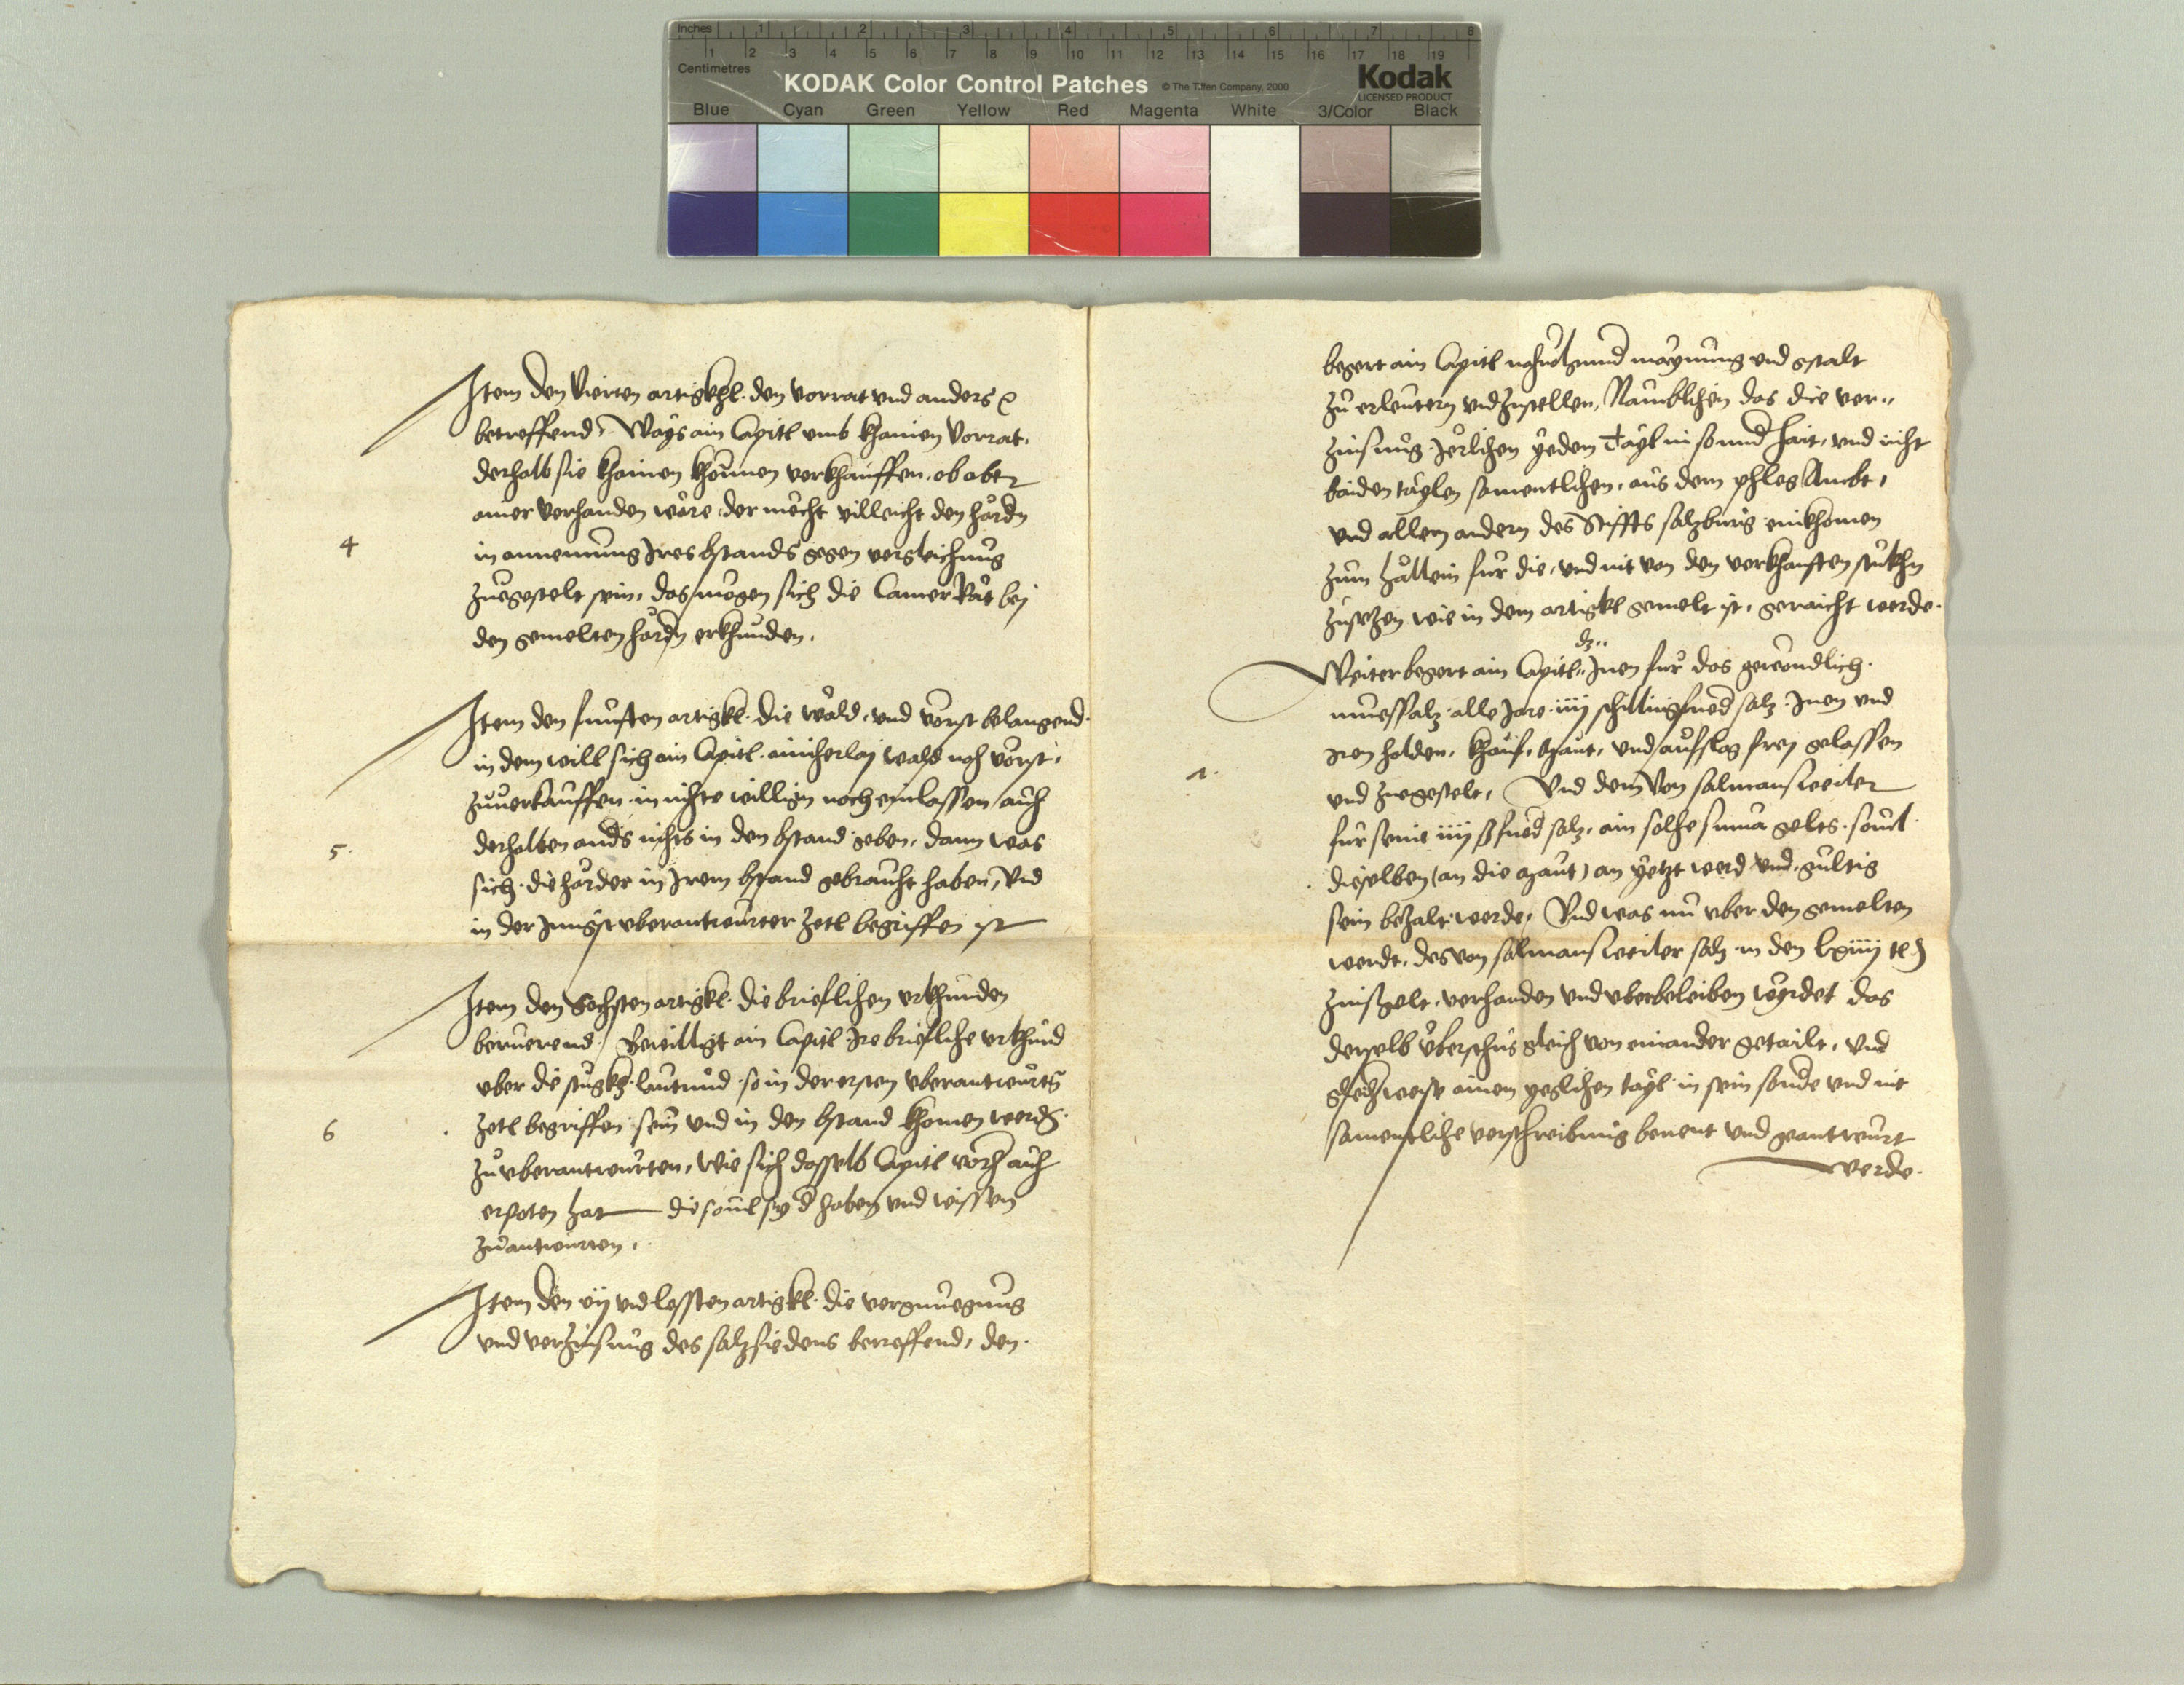 Inches 1 2 3 4 5 6 7 8
Centimetres 1 2 3 4 5 6 7 8 9 10 11 12 13 14 15 16 17 18 19
KODAK Color Control Patches © The Tiffen Company, 2000 Kodak
LICENSED PRODUCT
Blue Cyan Green Yellow Red Magenta White 3/Color Black
Item den Vierten artigkhl. den vorrat vnd anders
betreffend, Ways ain Capitl vmb khainen Vorrat,
derhalb sie khainen khönnen verkhauffen, ob aber
ainer verhanden wäre der möcht villeicht den
4
in annemung Ires bstands gegen vergleichnus
zuegestelt sein, das mögen sich die Camer Rät bej
den gemelten erkhunden.
Item den funften artigkl. die wäld, vnd vorst belangend
in dem will sich ain Capitl ainicherlaj wald noch vorst,
zuuerkauffen in nichte willign noch einlassen auch
derhalben anders nichts in den bstand geben, dann was
5.
sich die in Irem bstand gebraucht haben, vnd
in der Jungst vberantwurter Zetl begriffen ist
Item den Sechsten artigkl. die brieflichen vrkhunden
beruerend, Bewilligt ain Capitl Ire briefliche vrkhund
vber die stugkh lautund so in der ersten vberantwurtn
6
Zetl begriffen sein vnd in den bstand khomen werdn
zu vberantwurten, wie sich dasselb Capitl vorh auch
erpoten hat die souil sy d haben vnd wissen
zuantwurten,
Item den vij vnd lessten artigkl. die vergnuegung
vnd verzinsung des salzsiedens betreffend, den
begert ain Capitl maynung vnd gstalt
zu erleutern vnd zustellen, Namblichen das die ver-
zinsung Jerlichen yedem Tayl in sonnderhait, vnd nicht
baiden taylen samentlichen, aus dem phleg Ambt,
vnd allem andern des Stiffts salzburg einkhomen
zum hällein fur die, vnd nit von den verkhauften stukhn
zusetzen wie in dem artigkl gemelt ist, geraicht werde.
dz
Weiter begert ain Capitl Inen fur das gewondlich
muessalz alle Jare iiij schilling fued salz Inen vnd
iren holden, khauf, maut, vnd aufslag frey gelassen
1.
vnd zuegestelt, Vnd dem Von salmansweiler
fur seine iiij ß fued salz, ain solhe suma gelts souil
dieselben (an die maut) an yetzt werd vnd gultig
sein bezalt werde, Vnd was nu vber den gemelten
werdt, des von salmansweiler salz in den lxiiij
zinsgelt verhanden vnd vberbeleiben wurdet das
derselb vberschus gleich von einander getailt, vnd
ainem yeglichen tayl in sein sonder vnd nit
samentliche verschreibung benent vnd geantwurt
werde.